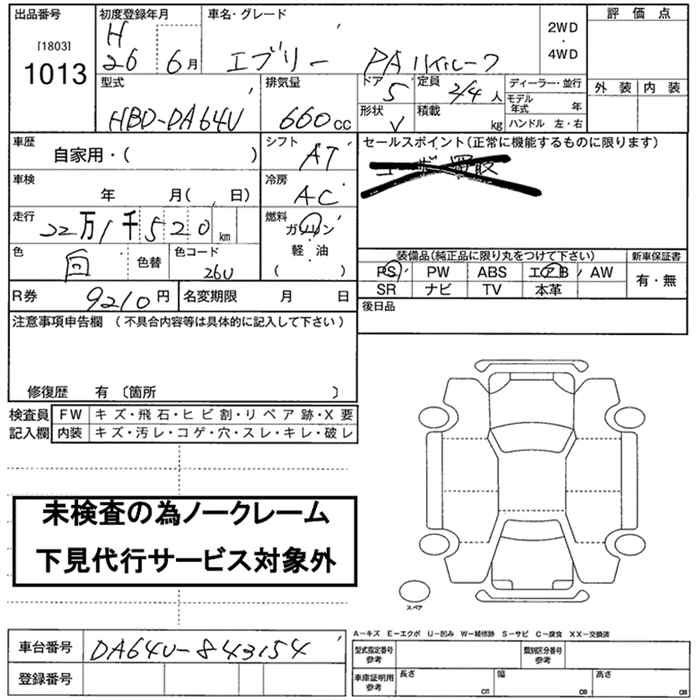 出品番号 初度登録年月 車名・グレード 評価点
[1803] H 2WD
1013 26 6月 エブリー PAハイルーフ ・
4WD
型式 排気量 ドア 定員 ディーラー・並行 外装 内装
HBD-DA64V 660cc 5 2/4人 モデル年式 年
形状 V 積載 kg ハンドル 左・右
車歴 シフト セールスポイント(正常に機能するものに限ります)
自家用・( ) AT
車検 冷房
年 月( 日) AC
走行 燃料
22万1千520km ガソリン
色 色替 色コード 軽・油 装備品(純正品に限り丸をつけて下さい) 新車保証書
回 26U ( ) PS PW ABS エアB AW 有・無
R券 9210円 名変期限 月 日 SR ナビ TV 本革
注意事項申告欄 (不具合内容等は具体的に記入して下さい) 後日品
修復歴 有 〔箇所 〕
検査員 FW キズ・飛石・ヒビ割・リペア跡・X要
記入欄 内装 キズ・汚レ・コゲ・穴・スレ・キレ・破レ
未検査の為ノークレーム
下見代行サービス対象外
スペア
A-キズ E-エクボ U-凹み W-補修跡 S-サビ C-腐食 XX-交換済
車台番号 DA64V-843154 型式指定番号参考 類別区分番号参考
登録番号 車庫証明用参考 長さ cm 幅 cm 高さ cm